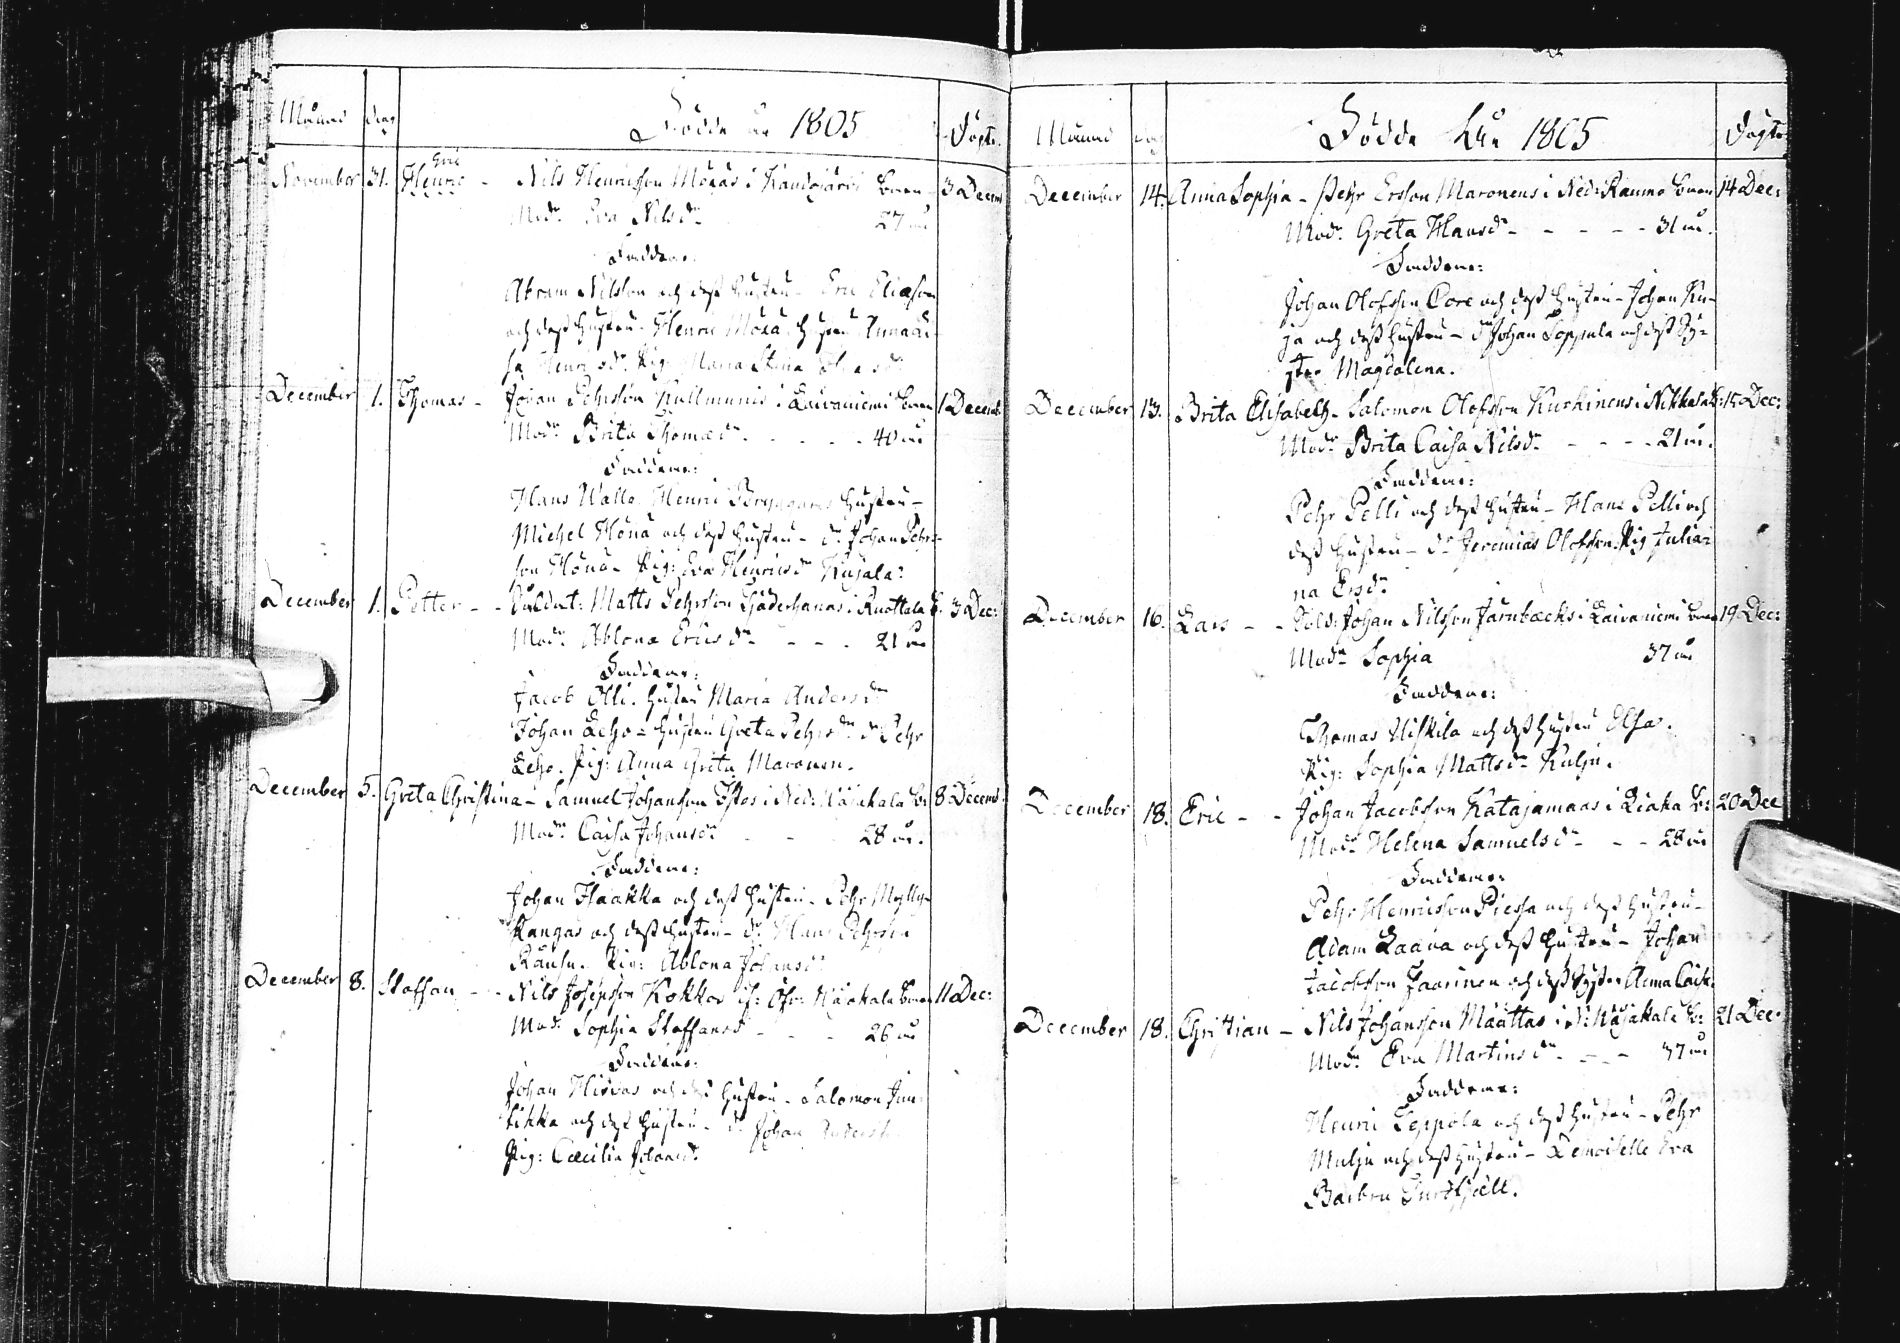 Månad dag Födde år 1805 Döpte
November 31. Eric
Henric - Nils Henricsson Mörås i Kandojärvi barn 3 Decem
Modr Eva Nilsdr 27 år
Faddrar:
Abram Nilsson och dess hustru - Eric Eliasson
och dess hustru. Henric Mörä hustru Annacai-
sa Henricsdr Pig: Maria Stina
December 1. Thomas - Johan Pehrsson Kullmunis i Laivaniemi barn 1 Decemb.
Modr Brita Thomædr - - - - 40 år
Faddrar:
Hans Walle. Henric hustru -
Michel Hönä och dess hustru - dr Johan Pehrs-
son Hönä - Pig: Eva Henricsdr Kujala:
December 1. Petter - - Soldat: Matts Pehrsson Göderhanas i Ruottala B. 3 Dec:
Modr Ablona Ericsdr - - - - 21 år
Faddrar:
Jacob Olli. hustru Maria Andersdr
Johan Leho - hustru Greta Pehrsdr dr Pehr
Leho. Pig: Anna Greta Maronen.
December 5. Greta Christina - Samuel Johansson i Ned: Wojakala B: 8 Decemb.
Modr Caisa Johansdr - - 28 år.
Faddrar:
Johan Haakka och dess hustru. Pehr Mylly-
kangas och dess hustru - dr Hans Pehrsson
Pig: Ablona Johansdr
December 8. Staffan - - Nils Josepsson Kokkos i Öfv: Wojakala barn 11 Dec:
Modr Sophia Staffansd - - - 26 år
Faddrar:
Johan Hiivas och dess hustru - Salomon Jun-
tikka och dess hustru - dr Johan
Pig: Cæcilia Johansd:
Månad dag Födde År 1805 Döpte
December 14. Anna Sophia - Pehr Ersson Maronens i Ned: Raumo barn 14 Dec:
Modr Greta Hansdr - - - - - 31 år.
Faddrar:
Johan Olofsson Core och dess hustru - Johan Ku-
ja och dess hustru - dr Johan Loppula och dess Sy-
ster Magdalena.
December 13. Brita Elisabeth - Salomon Olofsson Kurkinens i Nikkala B: 15 Dec:
Modr Brita Caisa Nilsdr - - - - 21 år.
Faddrar:
Pehr Pelli och dess hustru - Hans Pelli och
dess hustru - dr Jeremias Olofsson. Pig Julia-
na Ersdr
December 16. Lars - - Sold: Johan Nilsson Jarnbecks i Laivaniemi barn 19 Dec:
Modr Sophia 37 år
Faddrar:
Thomas Uiskila och dess hustru Elsa.
Pig: Sophia Mattsdr Kulju.
December 18. Eric - - Johan Jacobsson Katajamaas i Liaka B: 20 Dec
Modr Helena Samuelsdr - - - 28 år
Faddrar:
Pehr Henricsson Piessa och dess hustru -
Adam Laana och dess hustru - Johan
Jacobsson Jaarinen och dess Syster Anna Caisa.
December 18. Christian - Nils Johansson Määttas i N: Wojakala B: 21 Dec.
Modr Eva Martinsdr - - - 37 år
Faddrar:
Henric Leppola och dess hustru - Pehr
Mulju och dess hustru - Demoiselle Eva
Barbru